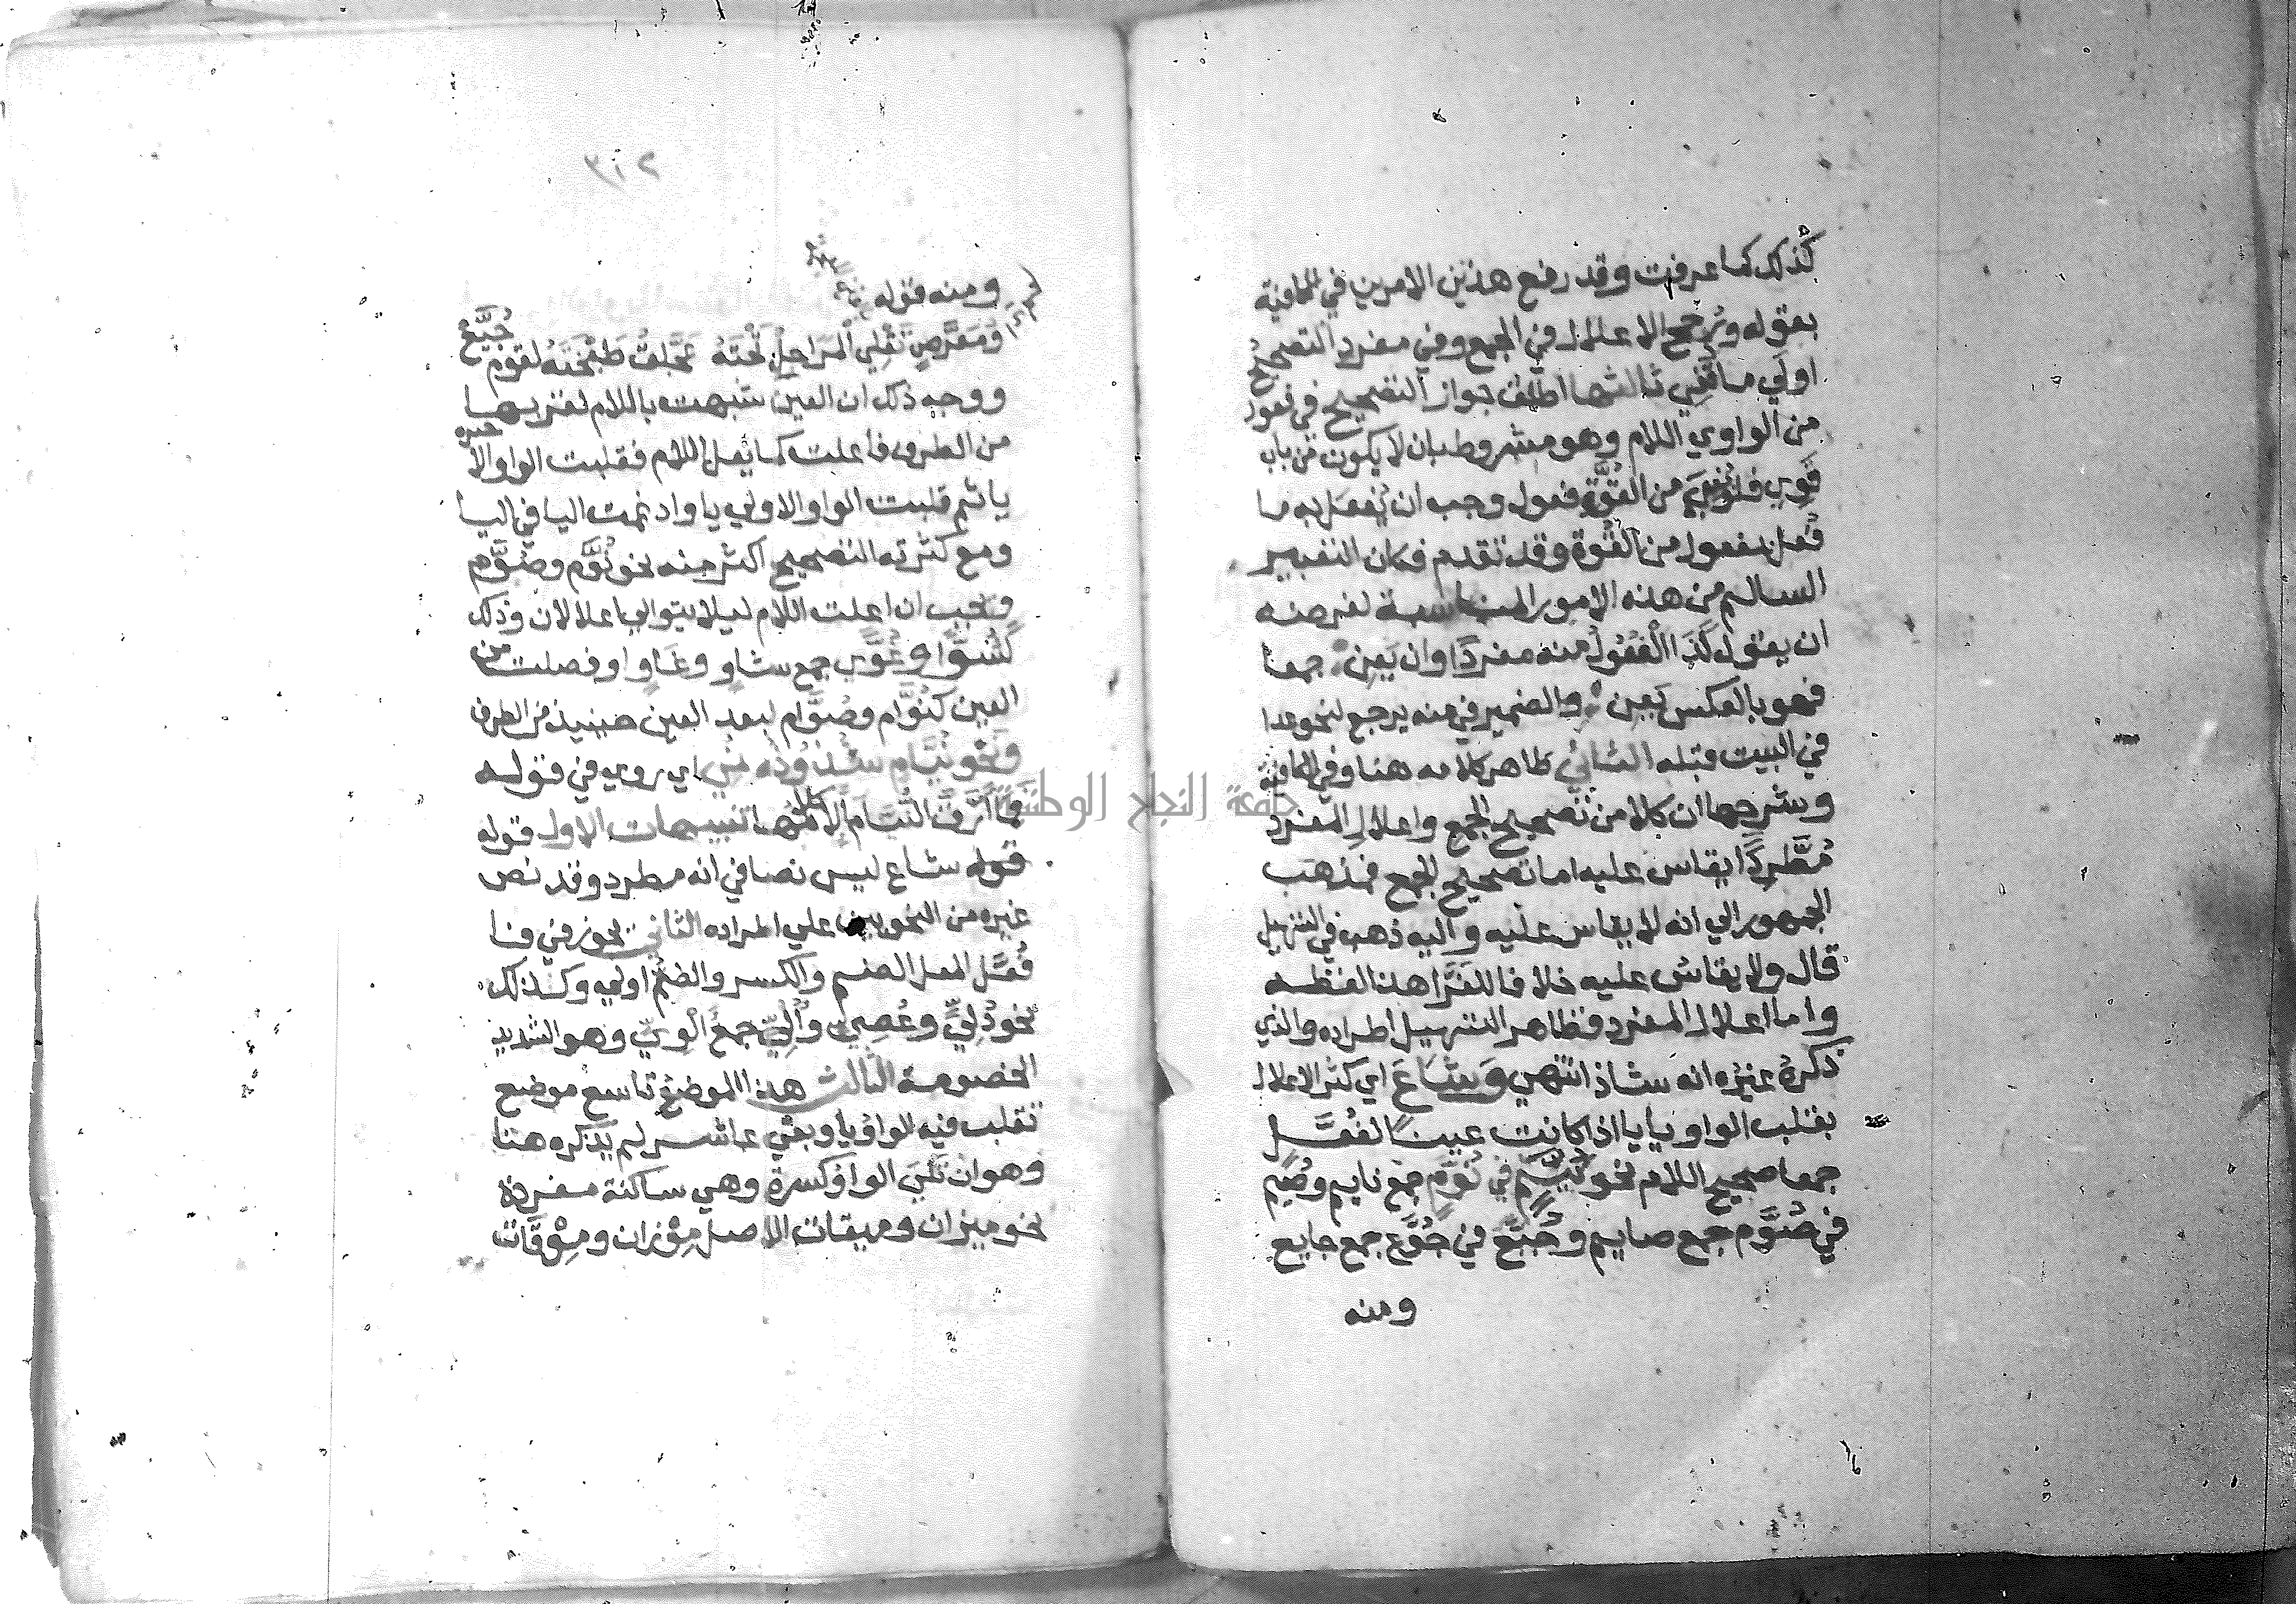 كذلك كما عرفت وقد رفع هذين الامرين في الكافية
بقوله ورجح الاعلال في الجمع وفي مفرد التصحيح
اولي ما قفي ثالثها اطلق جواز التصحيح في فعول
من الواوي اللام وهو مشروط بان لا يكون من باب
قوي فلو بني من القوة فعول وجب ان يفعل به ما
فعل بمفعول من القوة وقد تقدم فكان التعبير
السالم من هذه الامور المناسبة لغرضه
ان يقول كذا الفعول منه مفردا وان يعن جمعا
فهو بالعكس يعن والضمير في منه يرجع لنحو عدا
في البيت قبله الثاني ظاهر كلامه هنا وفي الكافية
وشرحها ان كلا من تصحيح الجمع واعلال المفرد
مطردا يقاس عليه اما تصحيح الجمع فذهب
الجمهور الي انه لا يقاس عليه واليه ذهب في التسهيل
قال ولا يقاس عليه خلافا للفرا هذا لفظه
واما اعلال المفرد فظاهر التسهيل اطراده والذي
ذكره غيره انه شاذ انتهي وشاع اي كثر الاعلال
بقلب الواو يا يا اذا كانت عينا لفعل
جمعا صحيح اللام نحو نيم في نوم جمع نايم وصيم
في صوم جمع صايم وجيع في جوع جمع جايع
ومنه
٣١٢
ومنه قوله
ومعرص تغلي المراجل تحته عجلت طبخته لقوم جيع
ووجه ذلك ان العين شبهت باللام لقربها
من الطرف فاعلت كما يعل اللام فقلبت الواو الاخيره
يا ثم قلبت الواو الاولي يا وادغمت اليا في اليا
ومع كثرته التصحيح اكثر منه نحو نوم وصوم
ويجب ان اعلت اللام ليلا يتوالي اعلالان وذلك
كشوا وغوي جمع شاو وغاو او فصلت من
العين كنوام وصوام لبعد العين حينيذ من الطرف
ونحو نيام شذوذه نمي اي روي في قوله
فما ارق النيام الا كلامها تنبيهات الاول قوله
قوله شاع ليس نصا في انه مطرد وقد نص
غيره من النحويين علي اطراده الثاني يجوز في فا
فعل المعل الضم والكسر والضم اولي وكذلك
نحو دلي وعصي والي جمع الوي وهو الشديد
الخصومة الثالث هذا الموضع تاسع موضع
تقلب فيه الواو يا وبقي عاشر لم يذكره هنا
وهو ان تلي الواو كسرة وهي ساكنة مفردة
نحو ميزان وميقات الاصل موزان وموقات
جامعة النجاح الوطنية